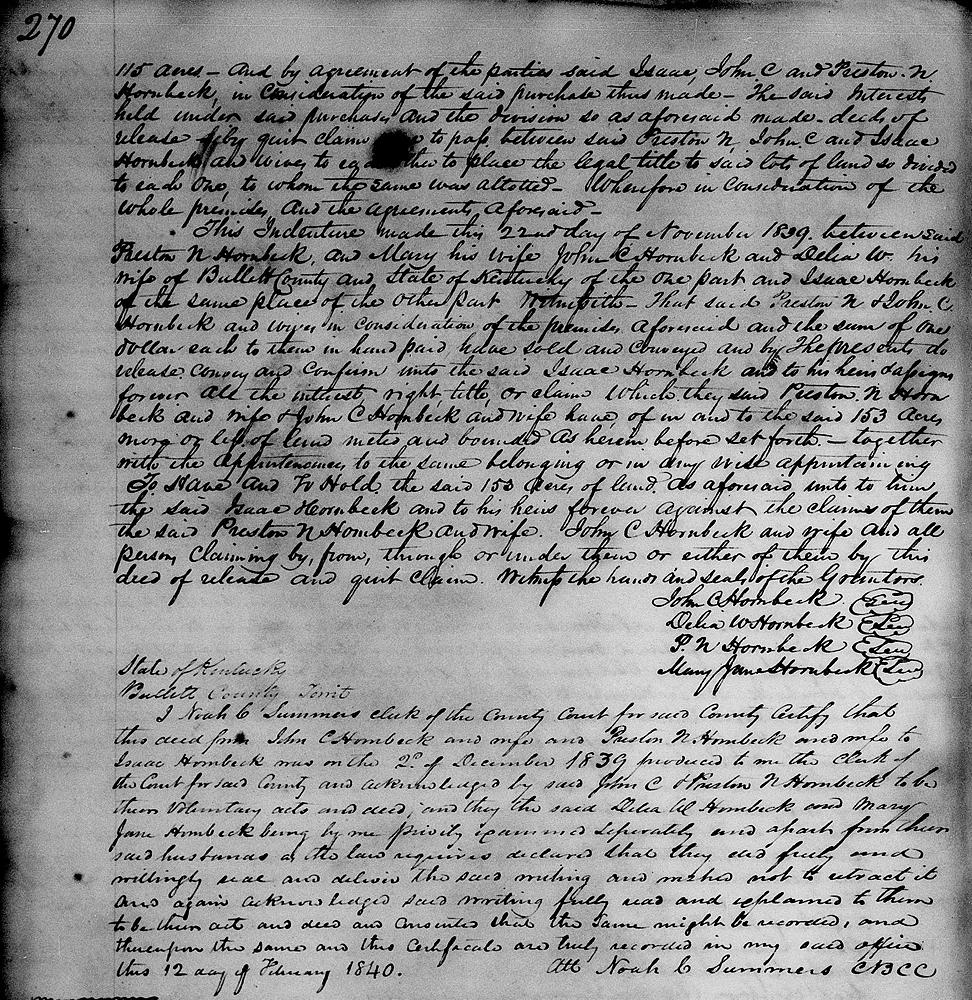 270
115 acres – And by agreement of the parties said Isaac, John C and Preston N.
Hornbeck, in Consideration of the said purchase thus made – The said Interests
held under said purchase, And the division so as aforesaid made – deeds of
release & by quit claim to pass between said Preston N, John C and Isaac
Hornbeck and wives to each other to place the legal title to said lots of land so divided
to each One, to whom the same was allotted – Wherefore in Consideration of the
whole premises, And the agreements, aforesaid –
This Indenture made this 22nd day of November 1839. between said
Preston N Hornbeck, and Mary his wife John C Hornbeck and Delia W. his
wife of Bullett County and State of Kentucky of the One part and Isaac Hornbeck
of the same place of the Other part Witnesseth – That said Preston N & John C.
Hornbeck and wives in Consideration of the premises aforesaid and the sum of One
dollar each to them in hand paid, have sold and Conveyed and by These presents do
release. Convey and Confirm unto the said Isaac Hornbeck and to his heirs & assigns
forever All the interest, right title, or claim Which they said Preston. N Horn
beck and wife & John C Hornbeck and wife have, of in and to the said 153 Acres
more or less of land meted and bounded As herein before set forth. – together
with the appurtenances, to the same belonging or in any wise appurtaining
To Have and To Hold, the said 153 Acres of land. As aforesaid unto to him
the said Isaac Hornbeck and to his heirs forever against the claims of them
the said Preston N Hornbeck And wife. John C Hornbeck and wife And all
persons Claiming by, from, through or under them or either of them by this
deed of release and quit Claim. Witness the hands and seals of the Grantors.
John C Hornbeck (Seal)
Delia W Hornbeck (Seal)
P. N Hornbeck (Seal)
Mary Jane Hornbeck (Seal)
State of Kentucky
Bullett County Sout
I Noah C Summers clerk of the County Court for said County Certify that
this deed from John C Hornbeck and wife and Preston N Hornbeck and wife to
Isaac Hornbeck was on the 2d of December 1839 produced to me the Clerk of
the Court for said County and acknowledged by said John C & Preston N Hornbeck to be
their Voluntary acts and deed, and they the said Delia W Hornbeck and Mary
Jane Hornbeck being by me privily examined Seperately and apart from their
said husbands as the law requires declared that they did freely and
willingly seal and deliver the said writing and wished not to retract it
and again acknowledged said writing fully read and explained to them
to be their act and deed and Consented that the same might be recorded, and
thereupon the same and this Certificate are truly recorded in my said office
this 12 day of February 1840.
Att Noah C Summers CBCC